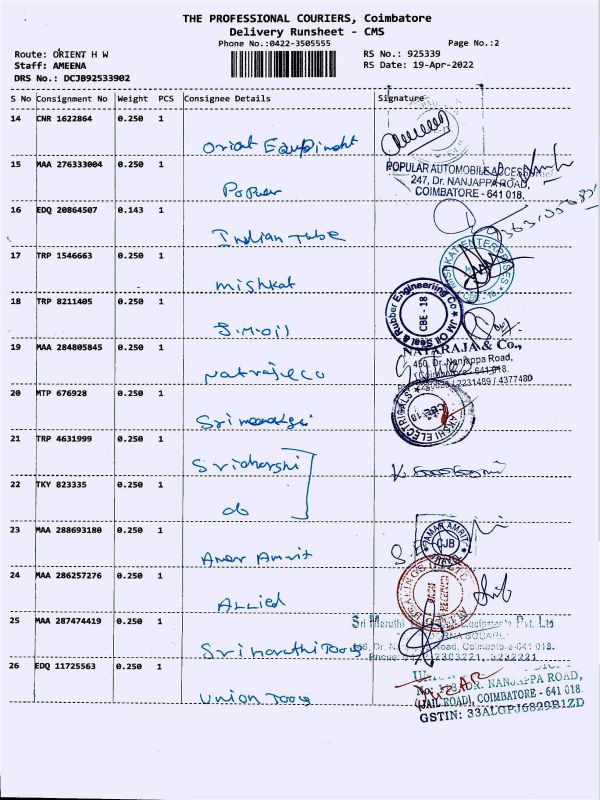 THE PROFESSIONAL COURIERS, Coimbatore
Delivery Runsheet - CMS
Phone No.:0422-3505555
Page No.:2
Route: ORIENT H W
RS No.: 925339
Staff: AMEENA
RS Date: 19-Apr-2022
DRS No.: DCJB92533902
S No Consignment No Weight PCS Consignee Details Signature
14 CNR 1622864 0.250 1
15 MAA 276333004 0.250 1
POPULAR AUTOMOBILE
247, Dr. NANJAPPA ROAD,
COIMBATORE - 641 018.
Popular
16 EDQ 20864507 0.143 1
Indian Tube
17 TRP 1546663 0.250 1
ENTERPRISES
mishkat
18 TRP 8211405 0.250 1
JM Oil Seal & Rubber Engineering Co
CBE - 18
J.M.oil
19 MAA 284805845 0.250 1
NATARAJA & Co.,
450, Dr. Nanjappa Road,
Coimbatore - 641 018.
/ 2231489 / 4377480
natraj & co
20 MTP 676928 0.250 1
ELECTRICALS
21 TRP 4631999 0.250 1
22 TKY 823335 0.250 1
do
23 MAA 288693180 0.250 1
AMAR AMRIT
CJB
Amar Amrit
24 MAA 286257276 0.250 1
ALLied
25 MAA 287474419 0.250 1
Sri Maruthi Pvt. Ltd
Road, Coimbatore-641 018.
2303221, 3232221
Sri marathi Toos
26 EDQ 11725563 0.250 1
DR. NANJAPPA ROAD,
(JAIL ROAD), COIMBATORE - 641 018.
GSTIN: 33ALGPJ6829B1ZD
union Toos